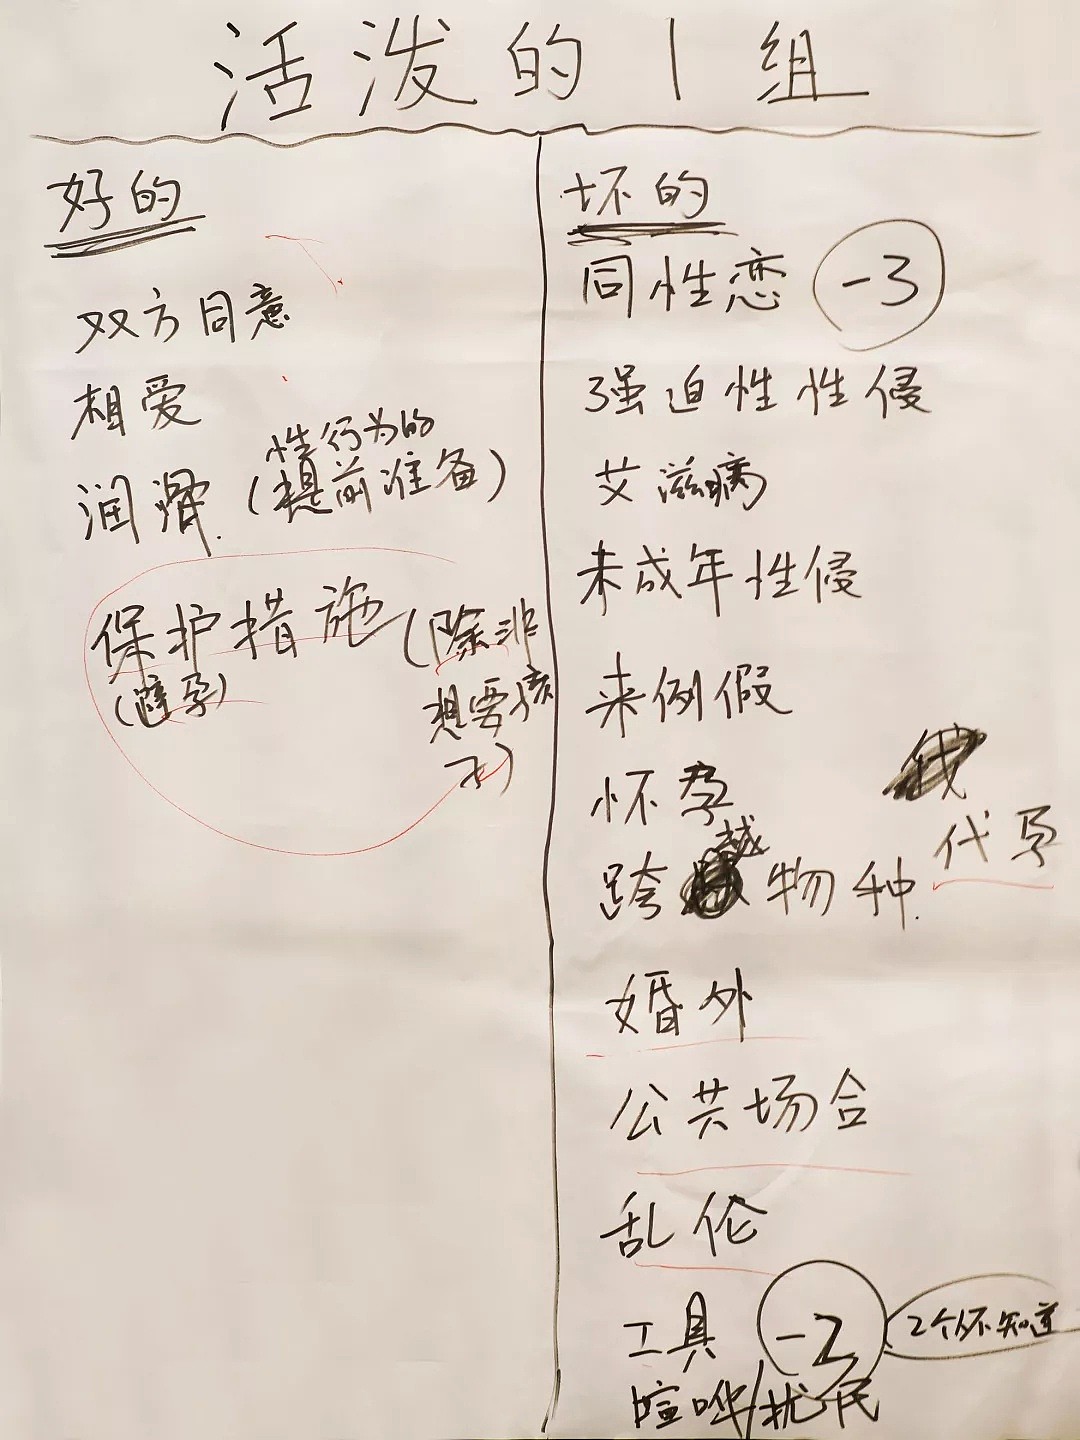 活泼的1组
好的
双方同意
相爱
润滑.(性行为的
提前准备)
保护措施(除非
(避孕) 想要孩
子)
坏的
同性恋 -3
强迫性性侵
艾滋病
未成年性侵
来例假
怀孕
代孕
跨越物种.
婚外
公共场合
乱伦
工具 -3 2个不知道
喧哗/扰民